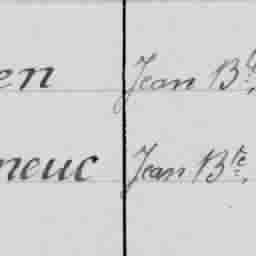 en Jean Bte.
neuc Jean Bte.